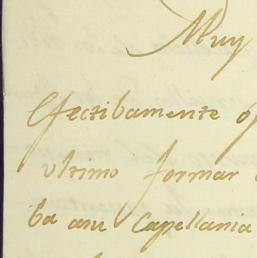 Muy
Efectibamente
ultimo formar
Capellania